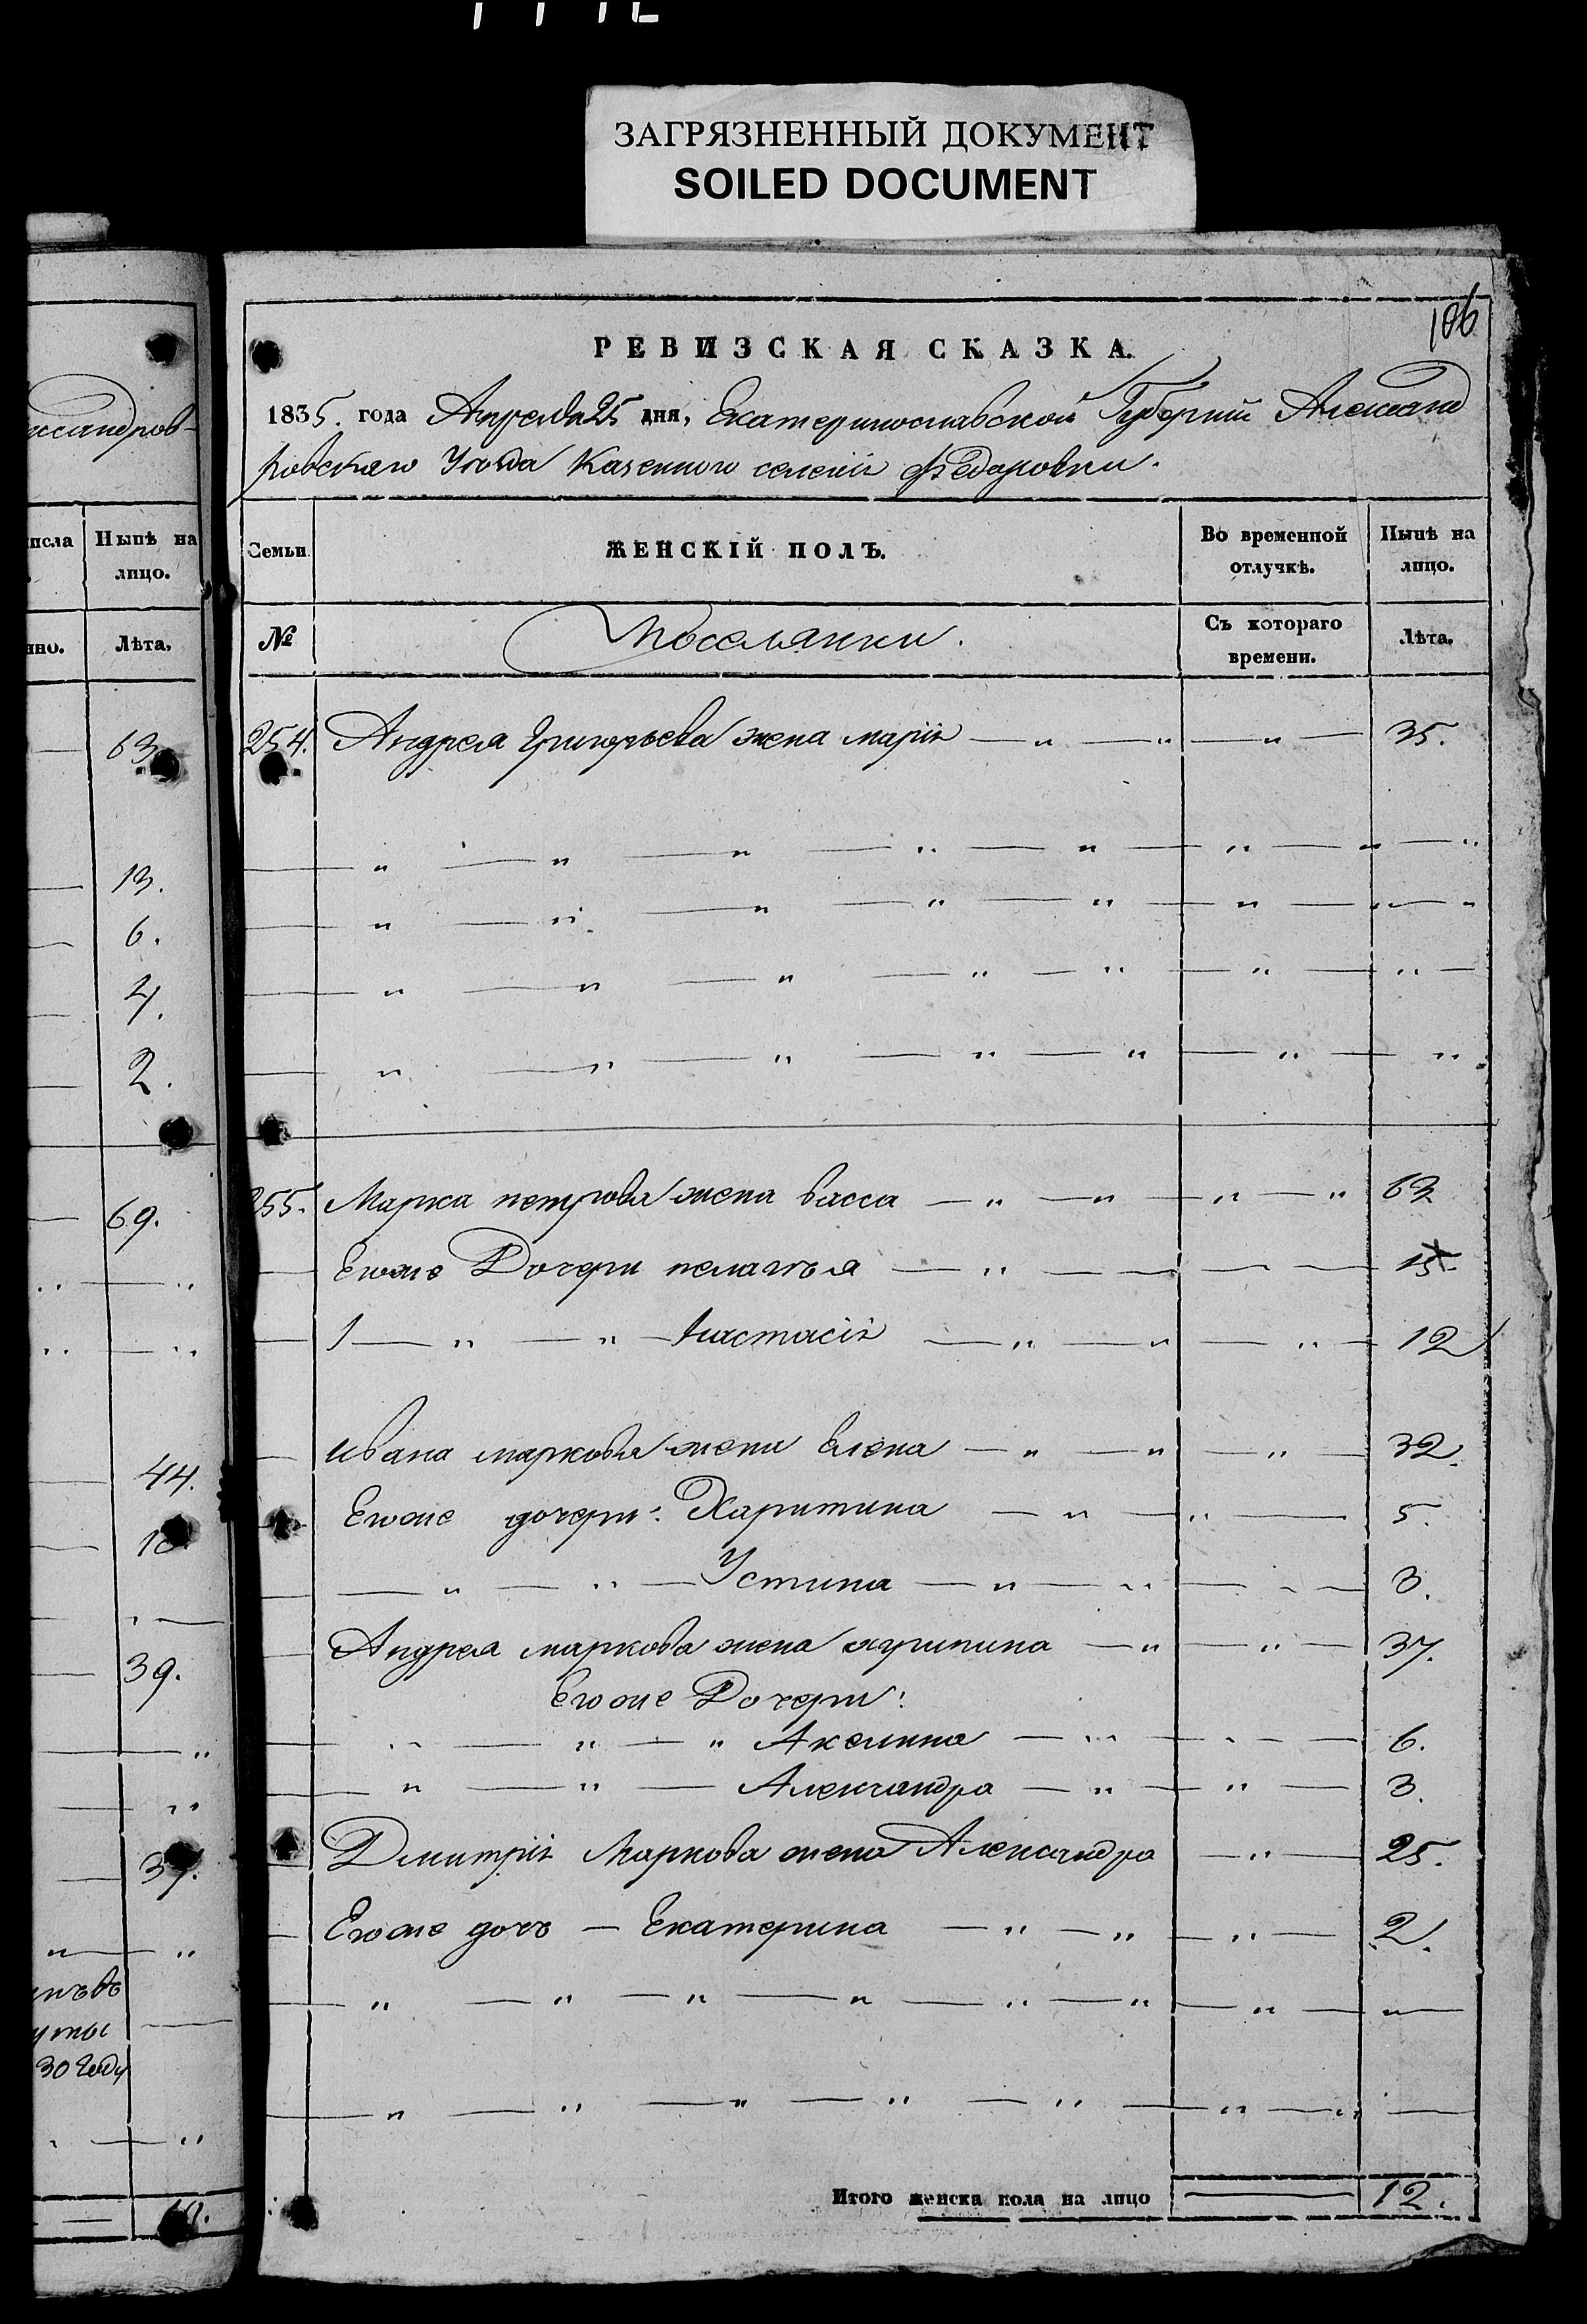 ЗАГРЯЗНЕННЫЙ ДОКУМЕНТ
SOILED DOCUMENT
106
РЕВИЗСКАЯ СКАЗКА.
1835. года Апреля 25 дня, Екатеринославской Губерніи Александ
ровскаго Уезда Казенного селенія Федоровки.
Семьи
ЖЕНСКІЙ ПОЛЪ.
Во временной отлучкѣ.
Нынѣ на лицо.
№
Поселянки.
Съ котораго времени.
Лѣта.
254. Андрея Григорьева жена марія — „ — „ — „ — 35.
255. Марка петрова жена васса — „ — „ — „ — „ 63
Егоже Дочери пелагѣя — „ — — — 15.
1 — „ — „ — Анастасія — „ — „ — „ — 12
Ивана маркова жена Елена — „ — „ — „ — 32.
Егоже дочери: Харитина — „ — „ — 5.
— „ — „ — Устина — „ — „ — „ — 3.
Андрея маркова жена агрипина — „ — „ — 37.
Егоже Дочери:
„ — „ — „ Акелина — „ — „ — 6.
„ — „ — Александра — „ — „ — 3.
Дмитрія Маркова жена Александра — „ — 25.
Егоже дочь — Екатерина — „ — „ — „ — 2.
Итого женска пола на лицо — 12.
ссандров-
исла
Нынѣ на лицо.
нно.
Лѣта.
63
13.
6.
4.
2.
69.
44.
39.
37.
уты
30 году